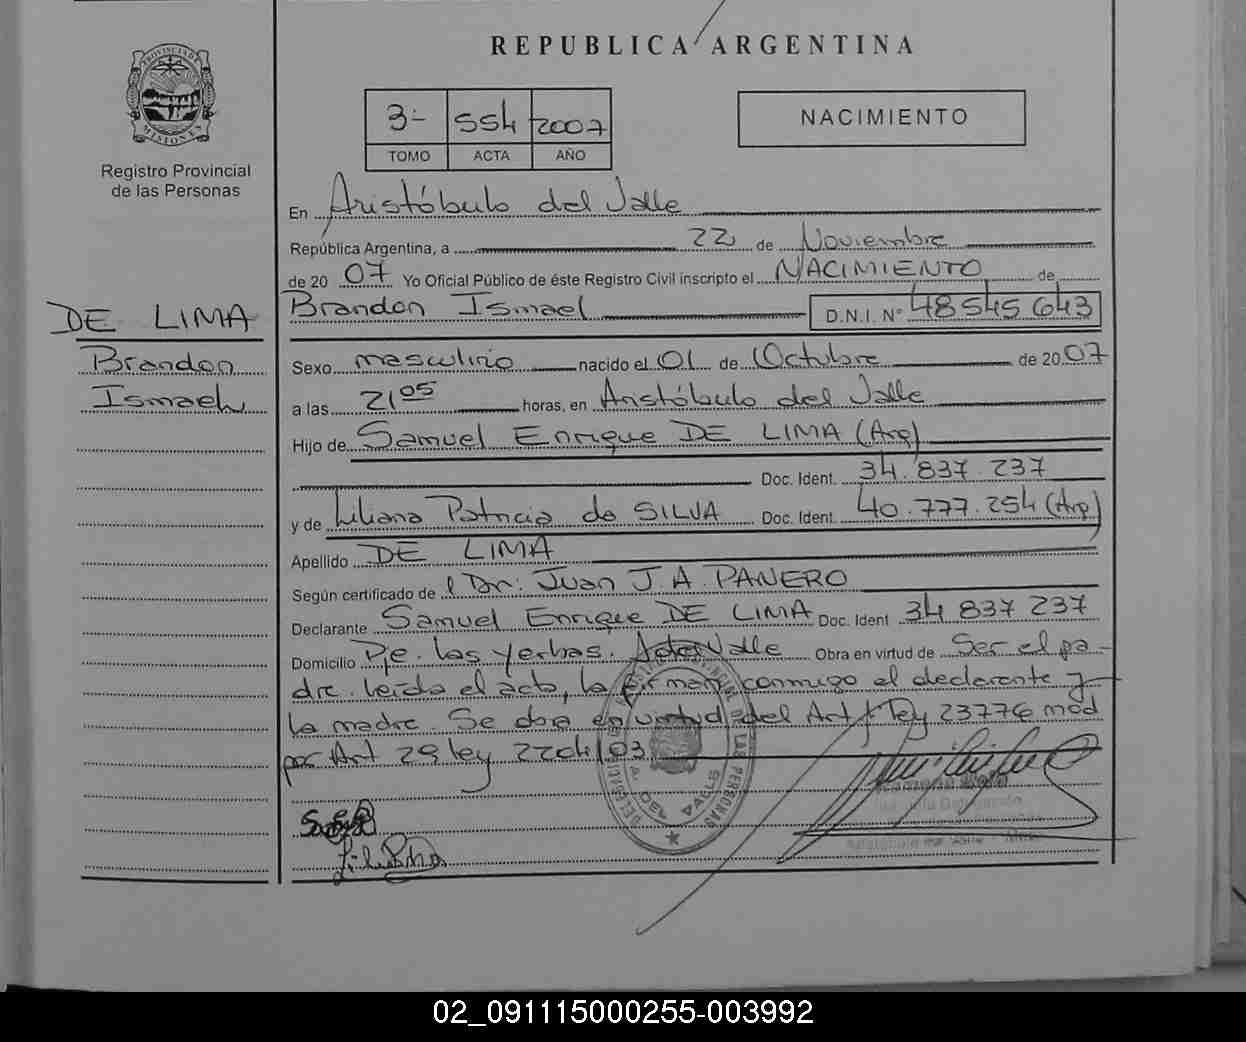 REPUBLICA ARGENTINA
PROVINCIA DE MISIONES
Registro Provincial
de las Personas
3- 554 2007
TOMO ACTA AÑO
NACIMIENTO
En Aristóbulo del Valle
República Argentina, a 22 de Noviembre
de 20 07 Yo Oficial Público de éste Registro Civil inscripto el NACIMIENTO de
DE LIMA
Brandon Ismael D.N.I. N° 48545643
Brandon
Ismael
Sexo masculino nacido el 01 de Octubre de 2007
a las 21 05 horas, en Aristóbulo del Valle
Hijo de Samuel Enrique DE LIMA (Arg)
Doc. Ident. 34.837.237
y de Liliana Patricia da SILVA Doc. Ident. 40.777.254 (Arg)
Apellido DE LIMA
Según certificado de l Dr: Juan J. A. PANERO
Declarante Samuel Enrique DE LIMA Doc. Ident 34 837 237
Domicilio Pje. las yerbas. A del Valle Obra en virtud de Ser el pa-
dre. leída el acta, la firman conmigo el declarante y
la madre. Se obra en virtud del Art 1 ley 23776 mod
por Art 29 ley 2204/03
DELEGACION REGISTRO PROVINCIAL DE LAS PERSONAS
A. DEL VALLE
02_091115000255-003992